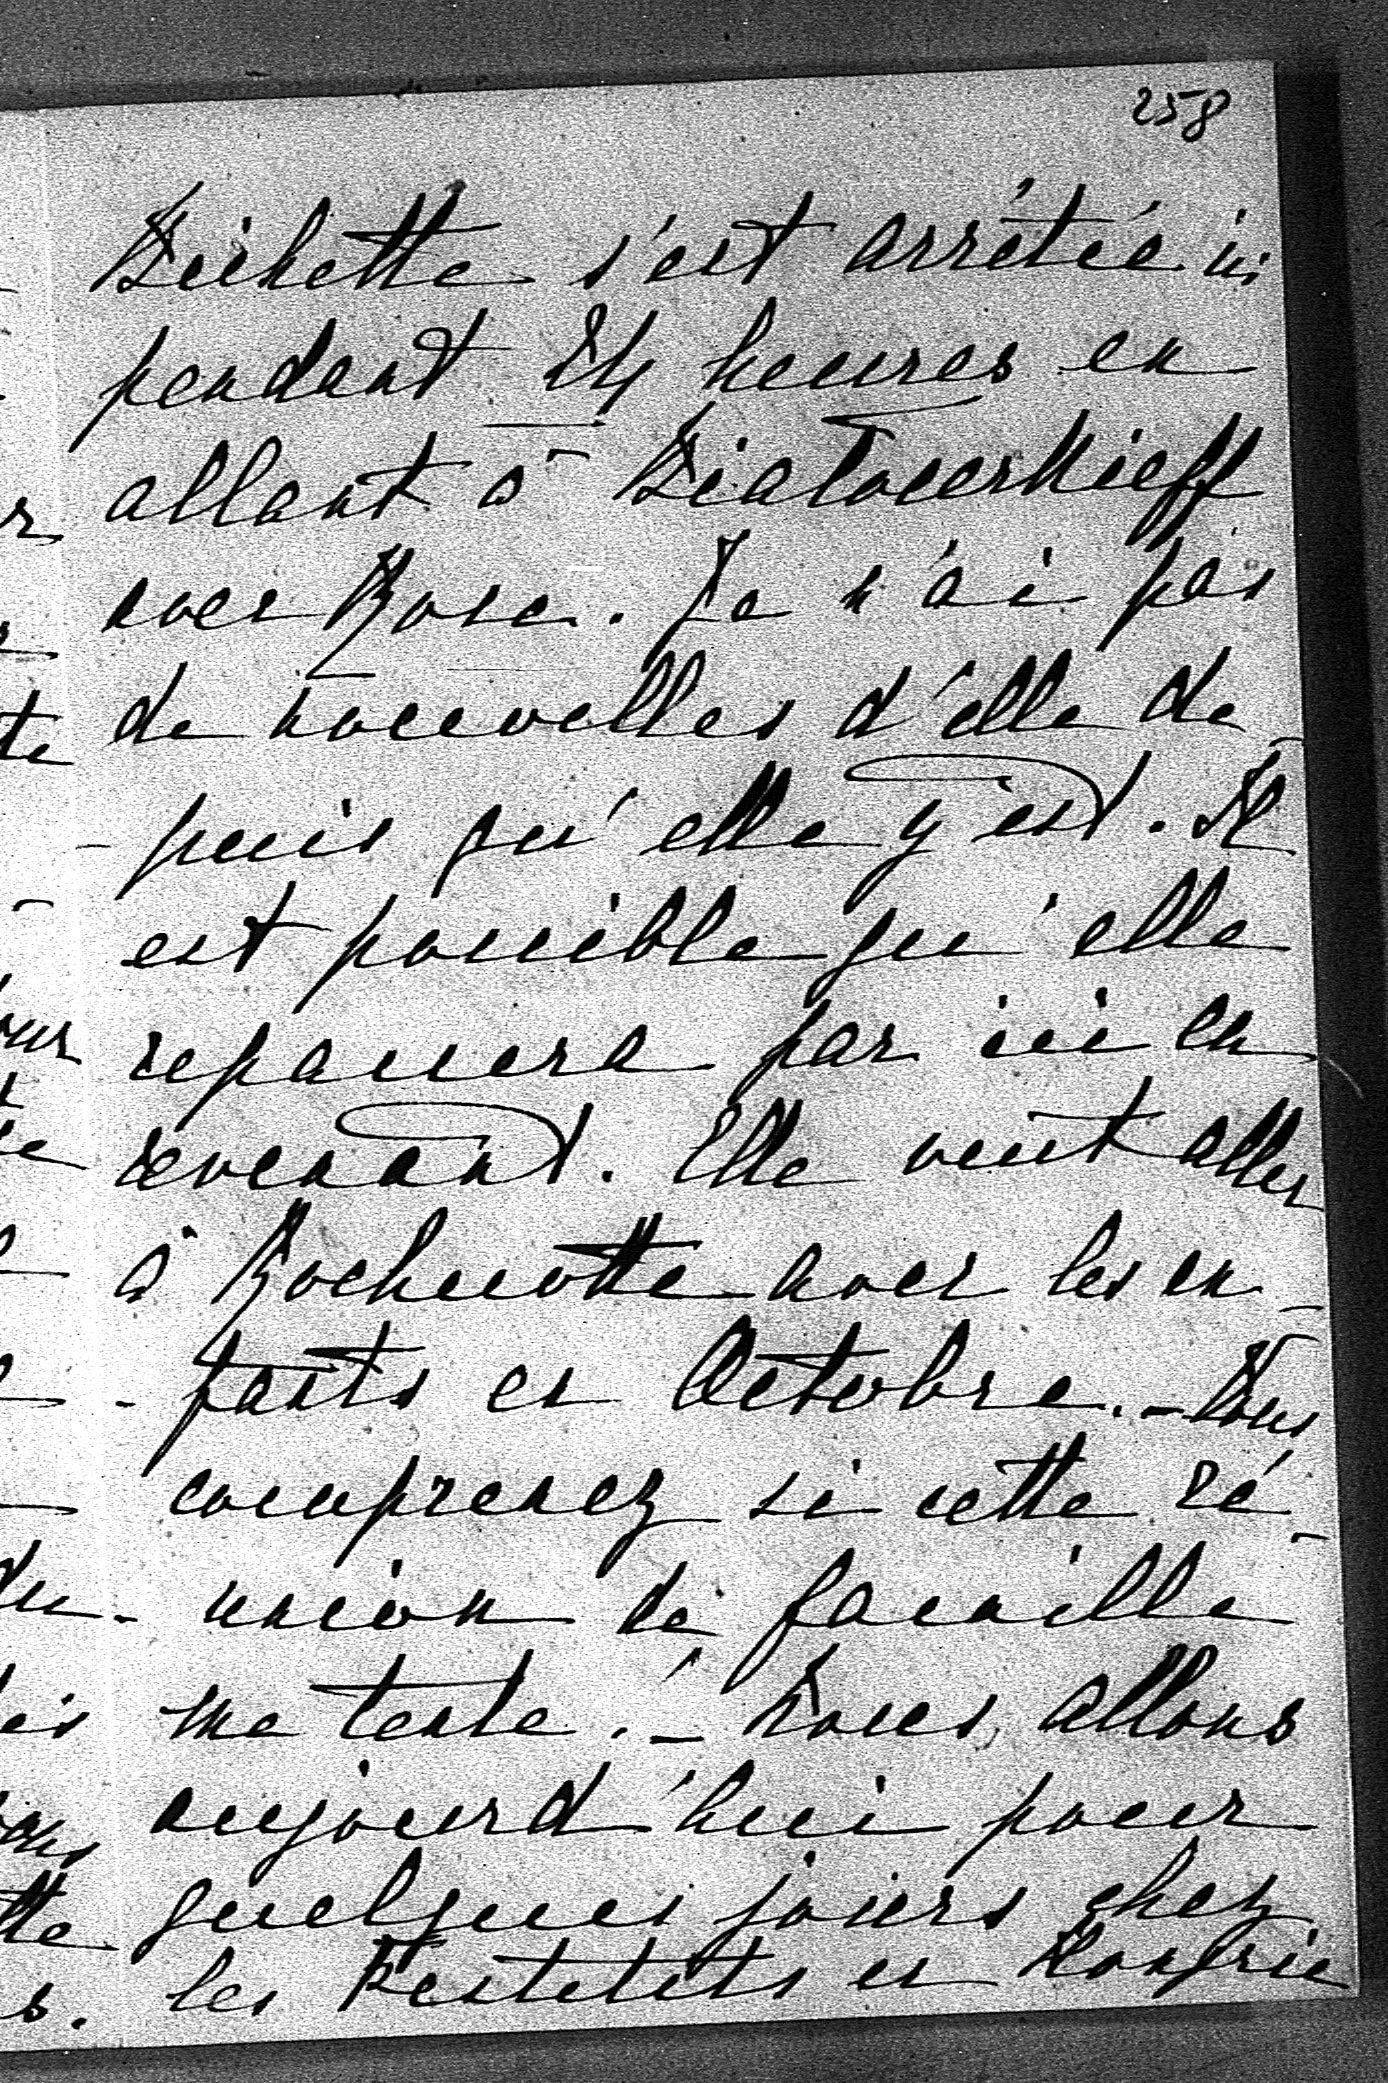 258
Bichette s'est arrêtée ici
pendant 24 heures en
allant à Bialocerkieff
avec Rose. Je n'ai pas
de nouvelles d'elle de-
puis qu'elle y est. Il
est possible qu'elle
repassera par ici en
revenant. Elle veut aller
à Rochecotte avec les en-
fants en Octobre. - Vous
comprenez si cette ré-
union de famille
me tente. - Nous allons
aujourd'hui pour
quelques jours chez
les Festetits en Hongrie